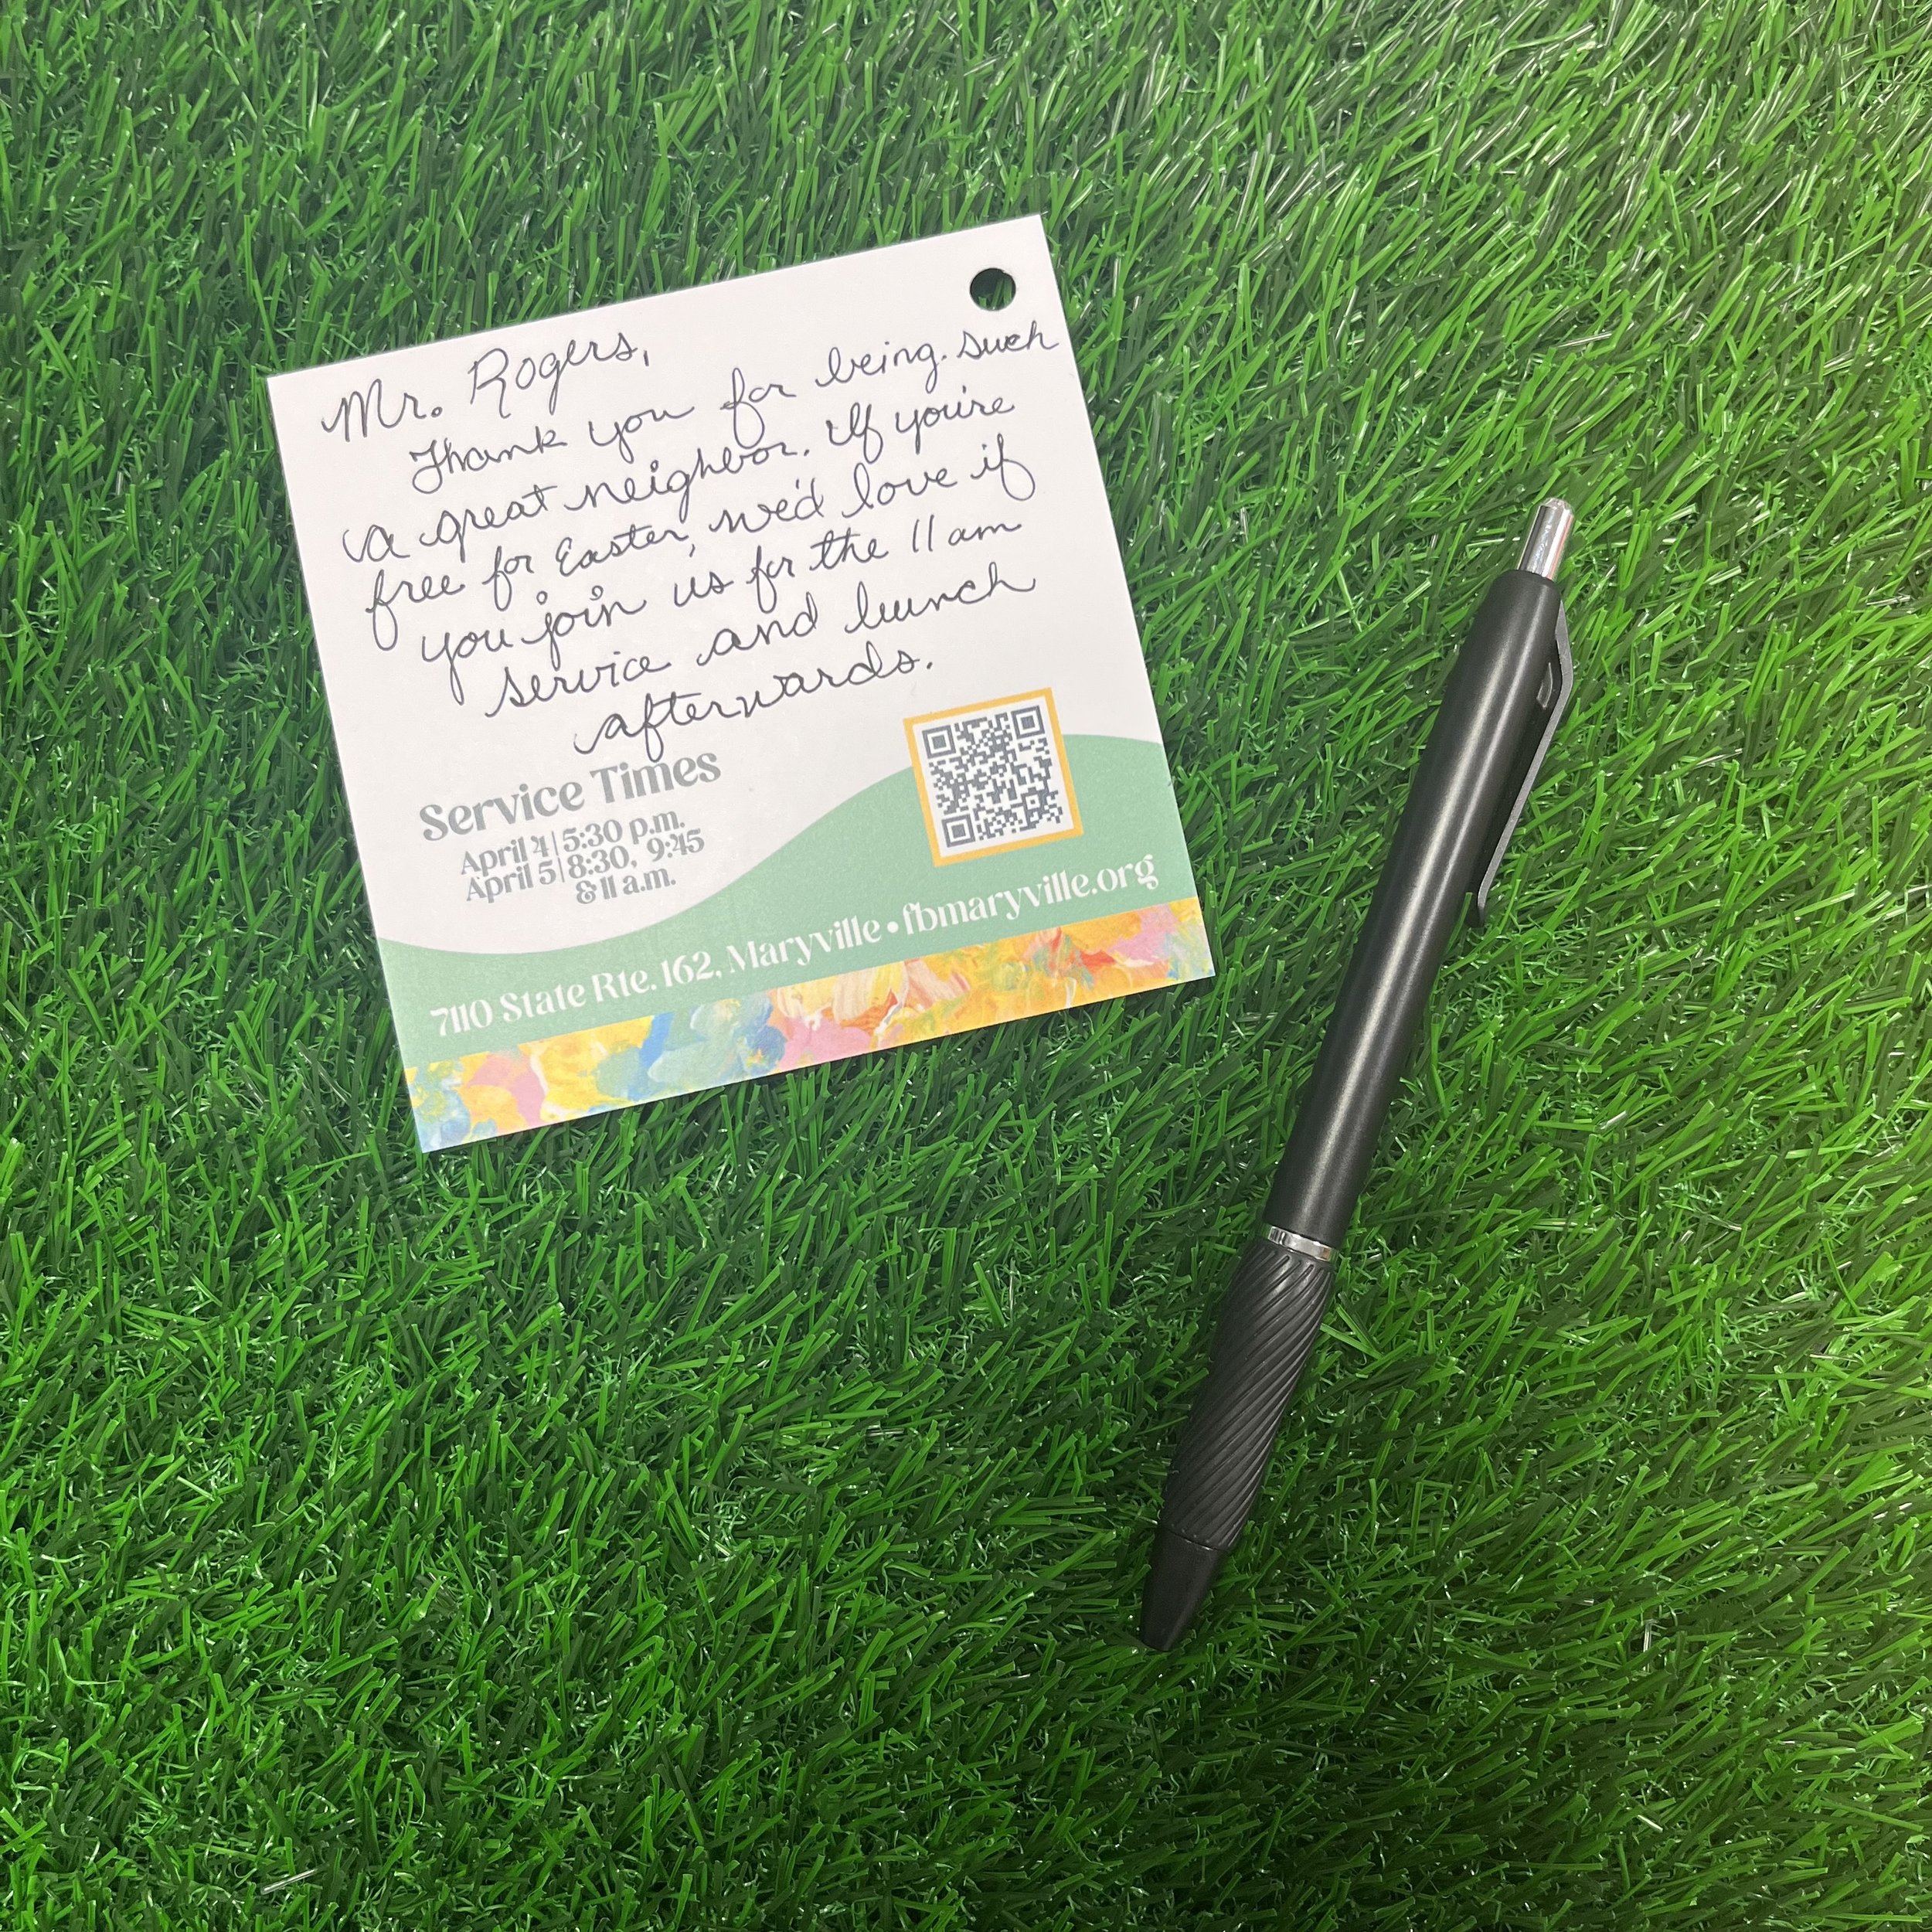 Mr. Rogers,
Thank you for being such
a great neighbor. If you're
free for Easter, we'd love if
you join us for the 11 am
service and lunch
afterwards.
Service Times
April 4 | 5:30 p.m.
April 5 | 8:30, 9:45
& 11 a.m.
7110 State Rte. 162, Maryville • fbmaryville.org